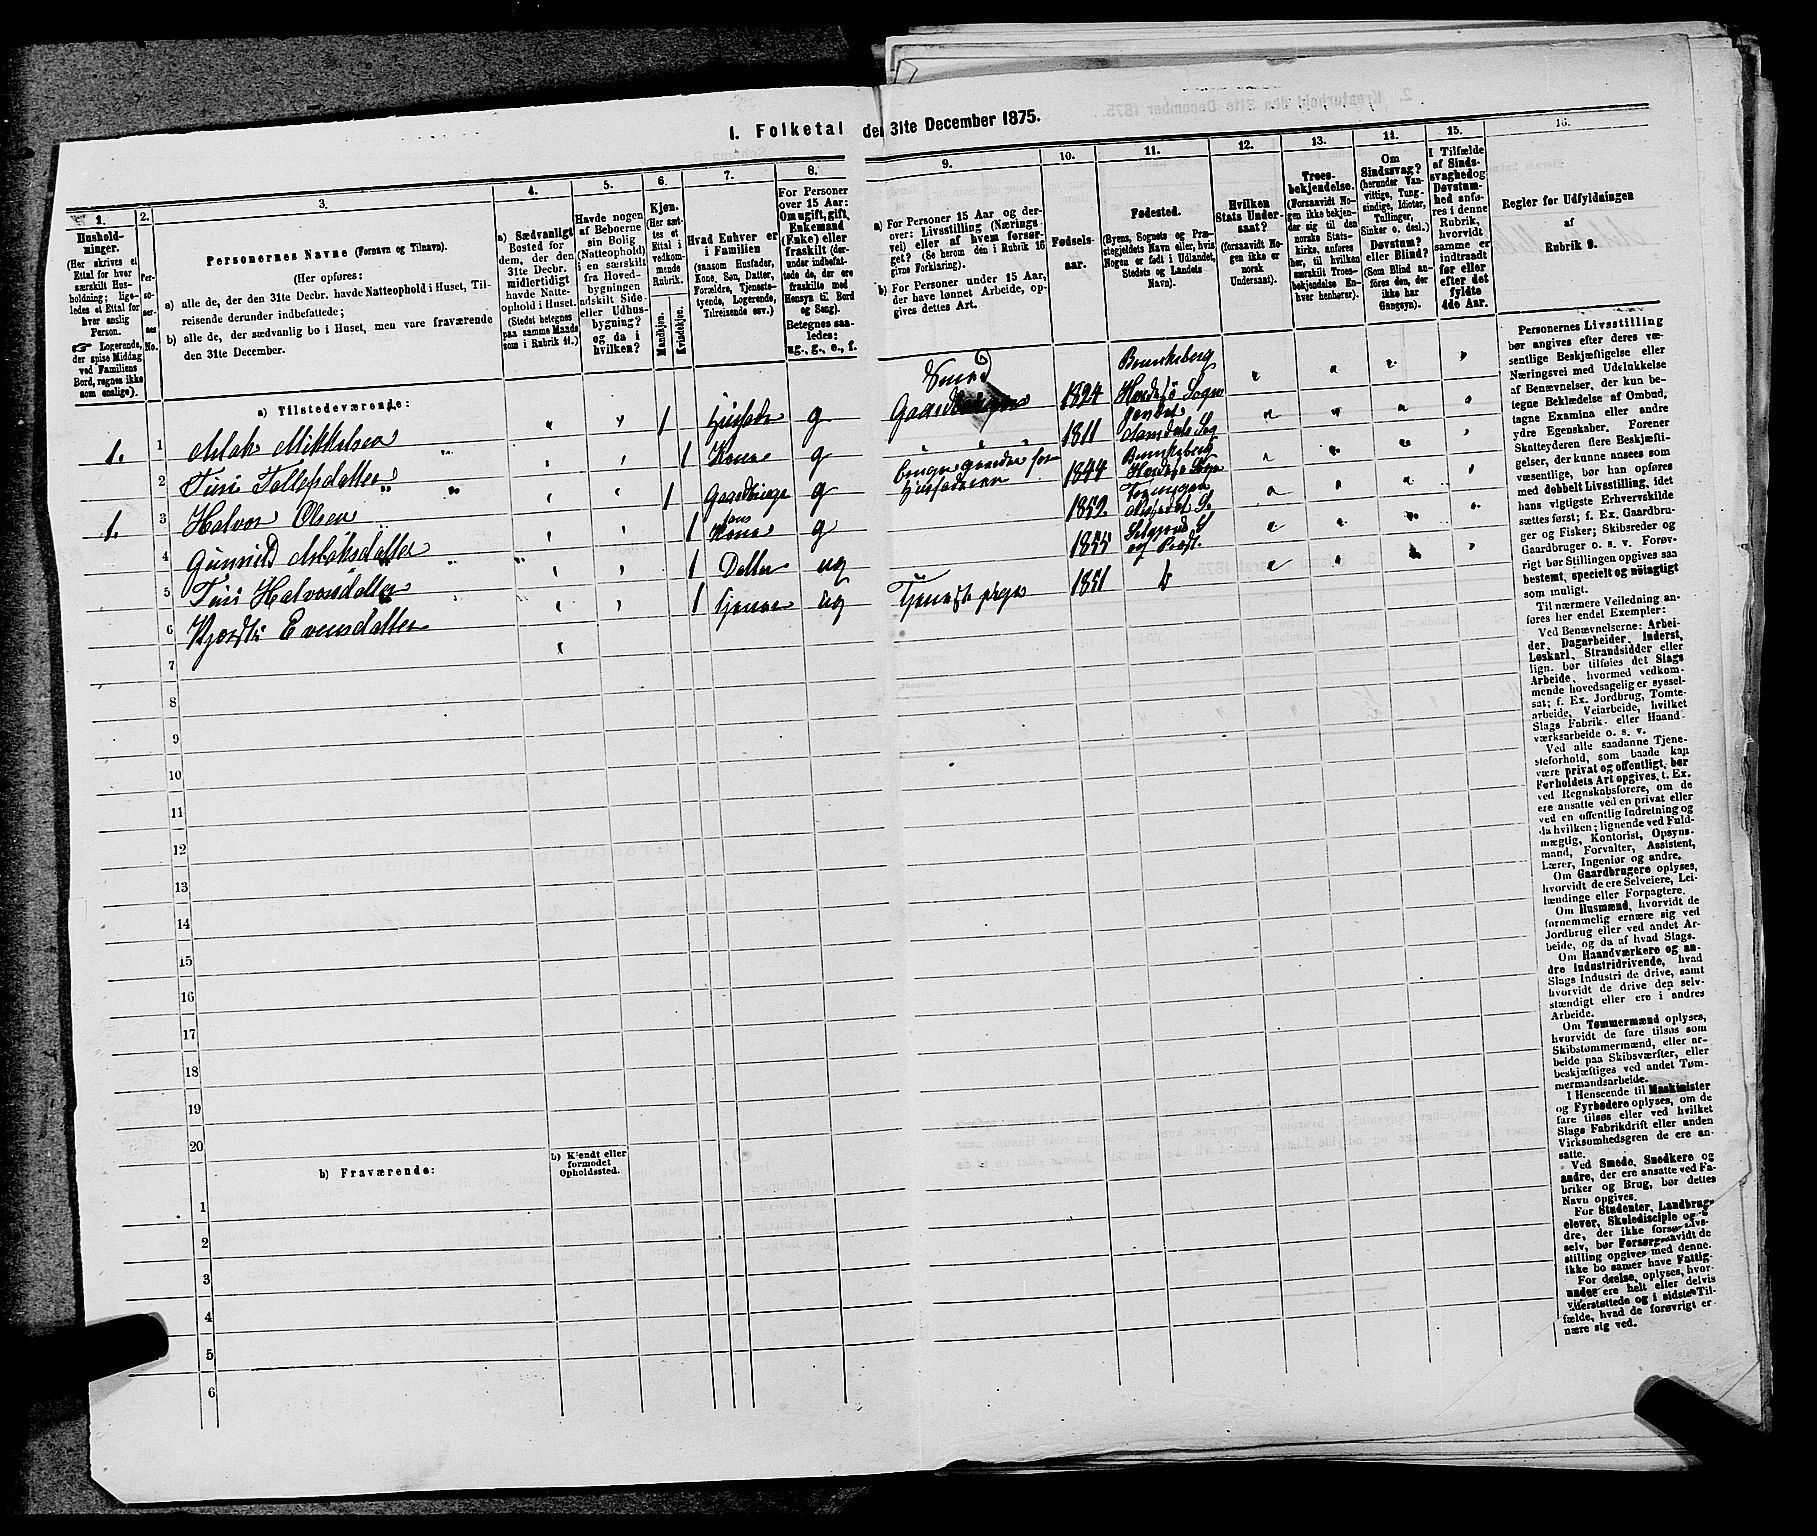 1. Folketal den 31te December 1875.
1.
Hushold-
ninger.
(Her skrives et
Ettal for hver
særskilt Hus-
holdning; lige-
ledes et Ettal for
hver enslig
Person.
☞ Logerende,
der spise Middag
ved Familiens
Bord, regnes ikke
som enslige).
2.
Per-
so-
ner-
nes
No.
3.
Personernes Navne (Fornavn og Tilnavn).
(Her opføres:
a) alle de, der den 31te Decbr. havde Natteophold i Huset, Til-
reisende derunder indbefattede;
b) alle de, der sædvanlig bo i Huset, men vare fraværende
den 31te December.
4.
a) Sædvanligt
Bosted for
dem, der den
31te Decbr.
midlertidigt
havde Natte-
ophold i Huset.
(Stedet betegnes
paa samme Maade
som i Rubrik 11.)
5.
Havde nogen
af Beboerne
sin Bolig
(Natteophold)
i en særskilt
fra Hoved-
bygningen
adskilt Side-
eller Udhus-
bygning?
og da i
hvilken?
6.
Kjøn.
(Her sæt-
tes et
Ettal i
vedkom-
mende
Rubrik.
Mandkjøn.
Kvindekjøn.
7.
Hvad Enhver er
i Familien
(saasom Husfader,
Kone, Søn, Datter,
Forældre, Tjeneste-
tyende, Logerende,
Tilreisende osv.)
8.
For Personer
over 15 Aar:
Om ugift, gift,
Enkemand
(Enke) eller
fraskilt (der-
under indbefat-
tede de, der ere
fraskilte med
Hensyn til Bord
og Seng).
Betegnes saa-
ledes:
ug., g., e., f.
9.
a) For Personer 15 Aar og der-
over: Livsstilling (Nærings-
vei) eller af hvem forsør-
get? (Se herom den i Rubrik 16
givne Forklaring).
b) For Personer under 15 Aar,
der have lønnet Arbeide, op-
gives dettes Art.
10.
Fødsels-
aar.
11.
Fødested.
(Byens, Sognets og Præ-
stegjeldets Navn eller, hvis
Nogen er født i Udlandet,
Stedets og Landets
Navn).
12.
Hvilken
Stats Under-
saat?
(forsaavidt No-
gen ikke er
norsk
Undersaat).
13.
Troes-
bekjendelse.
(Forsaavidt No-
gen ikke bekjen-
der sig til den
norske Stats-
kirke, anføres
her, til hvilken
særskilt Troes-
bekjendelse En-
hver henhører).
14.
Om
Sindssvag?
(herunder Van-
vittige, Tung-
sindige, Idioter,
Tullinger,
Sinker o. desl.)
Døvstum?
eller Blind?
(Som Blind an-
føres den, der
ikke har
Gangsyn).
15.
I Tilfælde
af Sinds-
svaghed og
Døvstum-
hed anfø-
res i denne
Rubrik,
hvorvidt
samme er
indtraadt
før eller
efter det
fyldte
4de Aar.
16.
Regler for Udfyldningen
af
Rubrik 9.
a) Tilstedeværende:
1. 1 Aslak Mikkelsen " " 1 Husfader g Smed Gaardbruger 1824 Brunkeberg Hvideseid Sogn
2 Turi Tollefsdatter " " 1 Kone g 1811
1. 3 Halvor Olsen 1 Gaardbruger g 1844 Brunkeberg
4 Gunnild Aslaksdatter 1 hans Kone g 1852
5 Turi Halvorsdatter 1 Datter ug 1855
6 Evensdatter 1 tjener ug Tjenestepige 1851
7
8
9
10
11
12
13
14
15
16
17
18
19
20
b) Fraværende:
b) Kjendt eller
formodet
Opholdssted.
1
2
3
4
5
6
Personernes Livsstilling
bør angives efter deres væ-
sentlige Beskjæftigelse eller
Næringsvei med Udelukkelse
af Benævnelser, der kun be-
tegne Beklædelse af Ombud,
tagne Examina eller andre
ydre Egenskaber. Forener
Skatteyderen flere Beskjæfti-
gelser, der kunne ansees som
væsentlige, bør han opføres
med dobbelt Livsstilling, idet
hans vigtigste Erhvervskilde
sættes først; f. Ex. Gaardbru-
ger og Fisker; Skibsreder og
Gaardbruger o. s. v. Forøv-
rigt bør Stillingen opgives saa
bestemt, specielt og nøiagtigt
som muligt.
Til nærmere Veiledning an-
føres her endel Exempler:
Ved Benævnelserne: Arbei-
der, Dagarbeider, Inderst,
Løskarl, Strandsidder eller
lign. bør tilføies det Slags
Arbeide, hvormed vedkom-
mende hovedsagelig er syssel-
sat; f. Ex. Jordbrug, Tomte-
arbeide, Veiarbeide, hvilket
Slags Fabrik- eller Haand-
værksarbeide o. s. v.
Ved alle saadanne Tjene-
steforhold, som baade kan
være privat og offentligt, bør
Forholdets Art opgives, t. Ex.
ved Regnskabsførere, om de
ere ansatte ved en privat eller
ved en offentlig Indretning og
da hvilken; lignende ved Fuld-
mægtig, Kontorist, Opsyns-
mand, Forvalter, Assistent,
Lærer, Ingeniør og andre.
Om Gaardbrugere oplyses,
hvorvidt de ere Selveiere, Lei-
lændinge eller Forpagtere.
Om Husmænd, hvorvidt de
fornemmelig ernære sig ved
Jordbrug eller ved andet Ar-
beide, og da af hvad Slags.
Om Haandværkere og an-
dre Industridrivende, hvad
Slags Industri de drive, samt
hvorvidt de drive den selv-
stændigt eller ere i andres
Arbeide.
Om Tømmermænd oplyses,
hvorvidt de fare tilsøs som
Skibstømmermænd, eller ar-
beide paa Skibsværfter, eller
beskjæftiges ved andet Tøm-
mermandsarbeide.
I Henseende til Maskinister
og Fyrbødere oplyses, om de
fare tilsøs eller ved hvilket
Slags Fabrikdrift eller anden
Virksomhedsgren de ere an-
satte.
Ved Smede, Snedkere og
andre, der ere ansatte ved Fa-
briker og Brug, bør dettes
Navn opgives.
For Studenter, Landbrugs-
elever, Skoledisciple og an-
dre, der ikke forsørge sig
selv, bør Forsørgerens Livs-
stilling opgives, forsaavidt de
ikke bo sammen med denne.
For dem, der have Fattig-
understøttelse, oplyses, hvor-
vidt de ere helt eller delvis
understøttede og i sidste Til-
fælde, hvad de forøvrigt er-
nære sig ved.